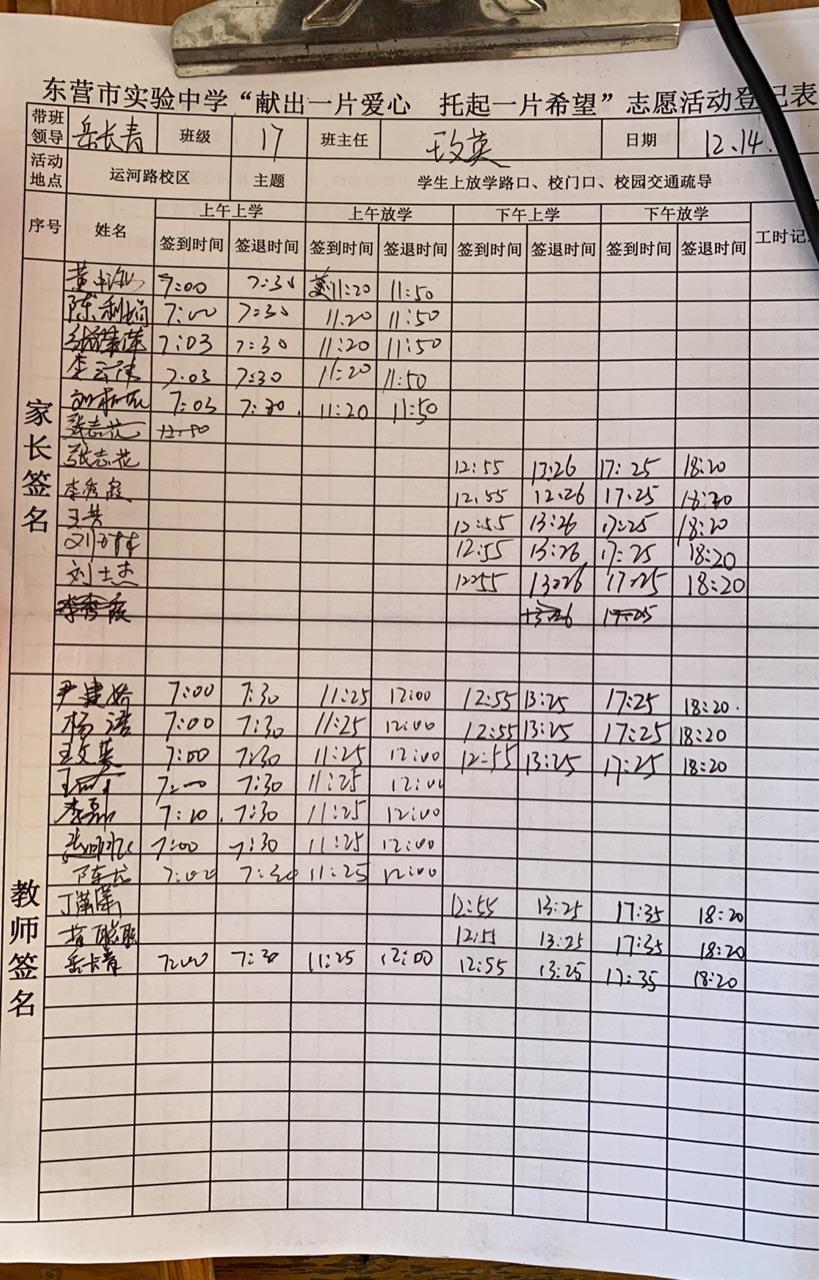 东营市实验中学“献出一片爱心 托起一片希望”志愿活动登记表
带班领导 岳长青 班级 17 班主任 王文英 日期 12.14.
活动地点 运河路校区 主题 学生上放学路口、校门口、校园交通疏导
序号 姓名 上午上学 上午放学 下午上学 下午放学 工时记
签到时间 签退时间 签到时间 签退时间 签到时间 签退时间 签到时间 签退时间
家长签名
7:00 7:30 11:20 11:50
陈利娟 7:00 7:30 11.20 11:50
7:03 7:30 11:20 11:50
李云 7:03 7:30 11:20 11:50
7:03 7:30. 11:20 11:50
张志花 12:50
张志花 12:55 13:26 17:25 18:20
李秀霞 12:55 12:26 17:25 18:20
王芸 12:55 13:26 17:25 18:20
12:55 13:26 17:25 18:20
刘士杰 12:55 13:26 17:25 18:20
李秀霞 13:26 17:25
教师签名
尹建娇 7:00 7:30 11:25 12:00 12:55 13:25 17:25 18:20.
杨洁 7:00 7:30 11:25 12:00 12:55 13:25 17:25 18:20
王文英 7:00 7:30 11:25 12:00 12:55 13:25 17:25 18:20
7:00 7:30 11:25 12:00
李磊 7:20 7:30 11:25 12:00
7:00 7:30 11:25 12:00
陈 7:00 7:30 11:25 12:00
丁 12:55 13:25 17:35 18:20
12:55 13:25 17:35 18:20
岳长青 7:00 7:30 11:25 12:00 12:55 13:25 17:35 18:20